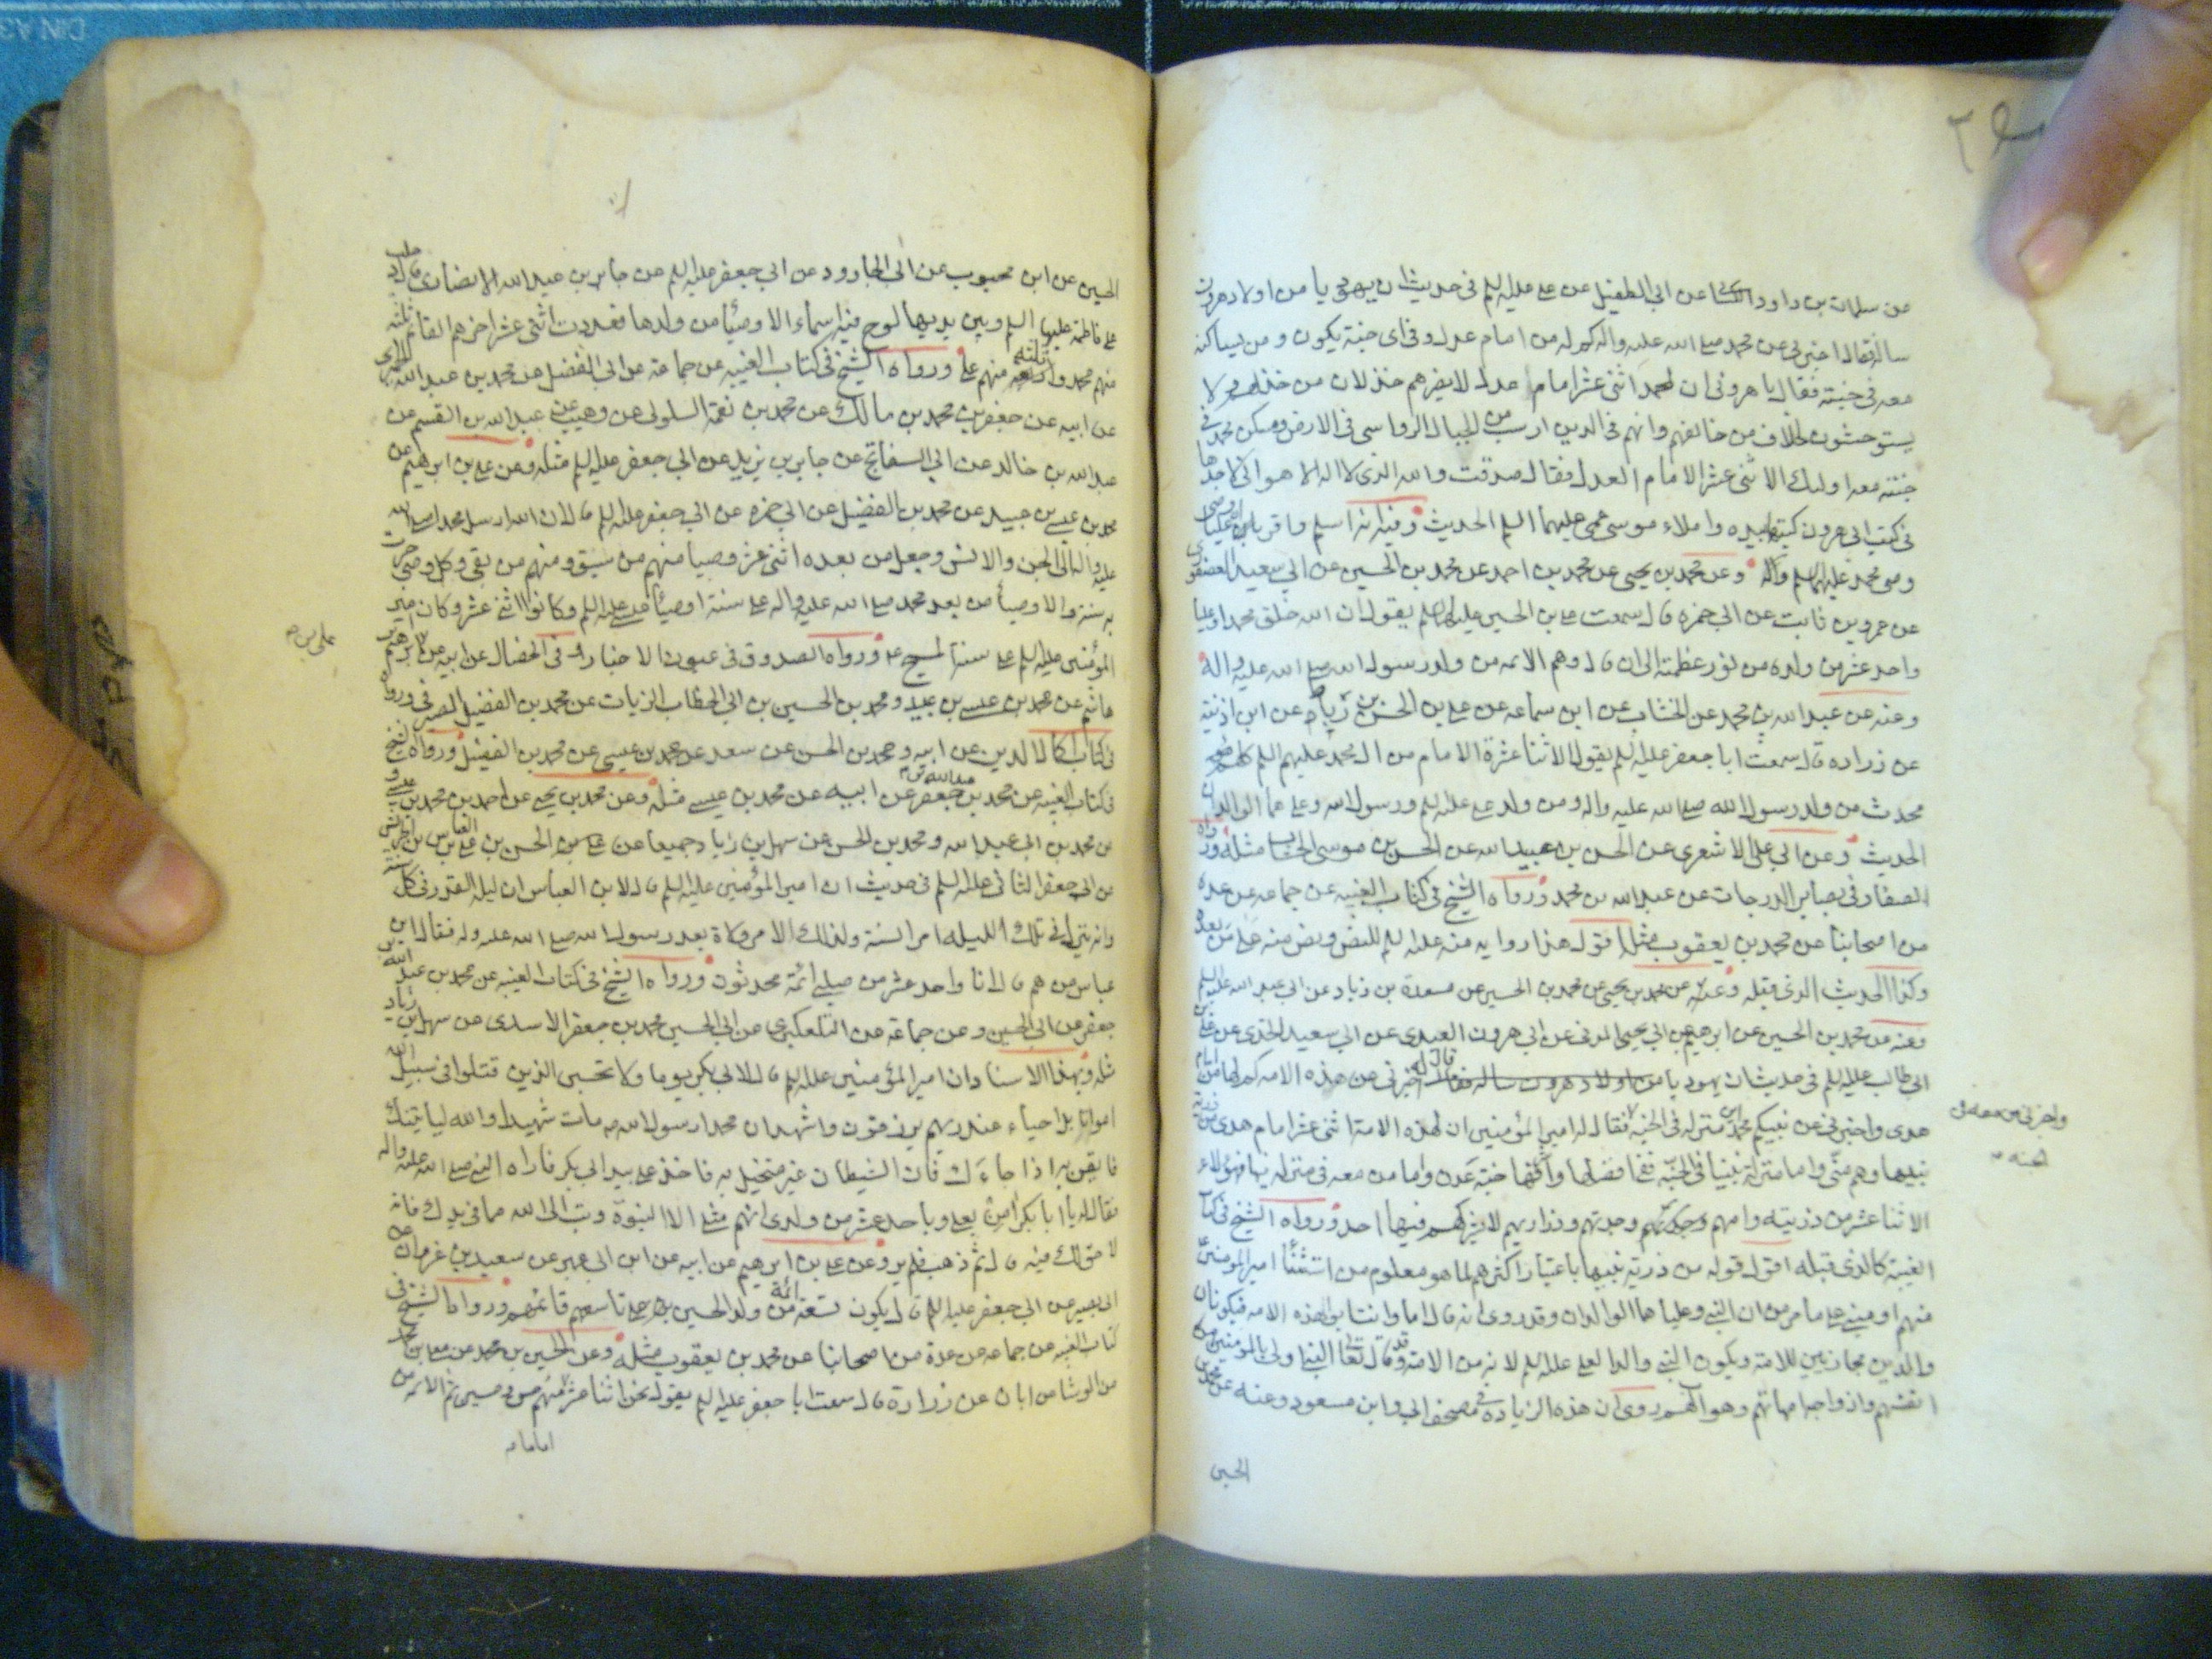 عن سليمان بن داود الكسائى عن ابى الطفيل عن على عليه السلم فى حديث ان يهوديا من اولاد هرون
ساله فقال اخبرنى عن محمد صلى الله عليه واله كم له من امام عدل وفى اى جنة يكون ومن يساكنه
معه فى جنته فقال يا هرونى ان لمحمد اثنى عشر امام عدل لا يضرهم خذلان من خذلهم ولا
يستوحشون بخلاف من خالفهم وانهم فى الدين ارسب من الجبال الرواسى فى الارض ومسكن محمد فى
جنته معه اولئك الاثنى عشر الامام العدل فقال صدقت والله الذى لا اله الا هو انى لاجدها
فى كتب ابى هرون كتبه بيده واملاء موسى عمى عليهما السلم الحديث وفيه انه اسلم واقر بان عليا وصى
وصى محمد عليهما السلم واله وعن محمد بن يحيى عن محمد بن احمد عن محمد بن الحسين عن ابى سعيد العصفورى
عن عمرو بن ثابت عن ابى حمزه قال سمعت على بن الحسين عليه السلم يقول ان الله خلق محمدا وعليا
واحد عشر من ولده من نور عظمته الى ان قال وهم الائمه من ولد رسول الله صلى الله عليه واله
وعنه عن عبد الله بن محمد عن الخشاب عن ابن سماعه عن على بن الحسن بن رباط عن ابن اذينه
عن زراره قال سمعت ابا جعفر عليه السلم يقول الاثنا عشرة الامام من ال محمد عليهم السلم كلهم
محدث من ولد رسول الله صلى الله عليه واله ومن ولد على عليه السلم ورسول الله وعلى هما الوالدان
الحديث وعن ابى على الاشعرى عن الحسن بن عبيد الله عن الحسن بن موسى الخشاب مثله ورواه
الصفار فى بصاير الدرجات عن عبد الله بن محمد ورواه الشيخ فى كتاب الغيبه عن جماعه عن عده
من اصحابنا عن محمد بن يعقوب مثله اقول هذا روايه منه عليه السلم للنص ونص منه على من بعده
وكذا الحديث الذى قبله وعنه عن محمد بن يحيى عن محمد بن الحسين عن مسعدة بن زياد عن ابى عبد الله عليه السلم
وعنه عن محمد بن الحسين عن ابرهيم عن ابى يحيى المدنى عن ابى هرون العبدى عن ابى سعيد الخدرى عن على بن
ابى طالب عليه السلم فى حديث ان يهوديا من اولاد هرون ساله فقال له اخبرنى عن هذه الامه كم لها من امام
هدى واخبرنى عن نبيكم محمد اين منزله فى الجنه فقال له امير المؤمنين ان لهذه الامة اثنى عشر امام هدى من ذرية
نبيها وهم منى واما منزلة نبينا فى الجنة ففى افضلها واشرفها جنة عدن واما من معه فى منزله فيها فهؤلاء
الاثنا عشر من ذريته وامهم وجدتهم وجدتهم وذراريهم لا يشركهم فيها احد ورواه الشيخ فى كتاب
الغيبة كالذى قبله اقول قوله من ذرية نبيها باعتبار اكثرهم لما هو معلوم من استثناء امير المؤمنين
منهم او مبنى على ما مر من ان النبى وعليا هما الوالدان وقد روى انه قال اما وانت ابوا هذه الامه فيكونان
والدين مجازيين للامة ويكون النبى والدا لعلى عليه السلم لانه من الامة وقد قال تعالى النبى اولى بالمومنين من
انفسهم وازواجه امهاتهم وهو اب لهم روى ان هذه الزيادة فى مصحف ابى وابن مسعود وعنه عن محمد بن
الحسين
واخبرنى من معه فى
الجنه
الحسين عن ابن محبوب عن ابى الجارود عن ابى جعفر عليه السلم عن جابر بن عبد الله الانصارى قال دخلت
على فاطمة عليها السلم وبين يديها لوح فيه اسماء الاوصياء من ولدها فعددت اثنى عشر اخرهم القائم ثلثة
منهم محمد واربعه ثلثة منهم على ورواه الشيخ فى كتاب الغيبه عن جماعة عن ابى المفضل عن محمد بن عبد الله الحميرى
عن ابيه عن جعفر بن محمد بن مالك عن محمد بن نعمة السلولى عن وهيب عن عبد الله بن القسم عن
عبد الله بن خالد عن ابى السفاتج عن جابر بن يزيد عن ابى جعفر عليه السلم مثله وعن على بن ابرهيم عن
محمد بن عيسى بن عبيد عن محمد بن الفضيل عن ابى حمزه عن ابى جعفر عليه السلم قال ان الله ارسل محمدا صلى الله
عليه واله الى الجن والانس وجعل من بعده اثنى عشر وصيا منهم من سبق ومنهم من بقى وكل وصى جرت
به سنة والاوصياء من بعد محمد صلى الله عليه واله على سنة اوصياء عيسى عليه السلم وكانوا اثنى عشر وكان امير
المؤمنين عليه السلم على سنة المسيح ورواه الصدوق فى عيون الاخبار وفى الخصال عن ابيه عن ابرهيم
هاشم عن محمد بن عيسى بن عبيد ومحمد بن الحسين بن ابى الخطاب الزيات عن محمد بن الفضيل الصيرفى ورواه
فى كتاب اكمال الدين عن ابيه ومحمد بن الحسن عن سعد عن محمد بن عيسى عن محمد بن الفضيل ورواه الشيخ
فى كتاب الغيبه عن محمد بن عبد الله بن جعفر عن ابيه عن محمد بن عيسى مثله وعن محمد بن يحيى عن احمد بن محمد بن عيسى و
عن محمد بن ابى عبد الله ومحمد بن الحسن عن سهل بن زياد جميعا عن الحسن بن العباس بن الحريش
عن ابى جعفر الثانى عليه السلم فى حديث ان امير المؤمنين عليه السلم قال لابن العباس ان ليلة القدر فى كل سنة
وانه يتنزل فى تلك الليله امر السنة ولذلك الامر ولاة بعد رسول الله صلى الله عليه وله فقال ابن
عباس من هم قال انا واحد عشر من صلبى ائمة محدثون ورواه الشيخ فى كتاب الغيبه عن محمد بن عبد الله بن
جعفر عن ابى الحسين وعن جماعة عن التلعكبرى عن ابى الحسين محمد بن جعفر الاسدى عن سهل بن زياد
مثله وبهذا الاسناد ان امير المؤمنين عليه السلم قال لابى بكر يوما ولا تحسبن الذين قتلوا فى سبيل الله
امواتا بل احياء عند ربهم يرزقون واشهد ان محمدا رسول الله مات شهيدا والله لياتينك
فايقن به اذا جاءك فان الشيطان غير متخيل به فاخذ على بيد ابى بكر فاراه النبى صلى الله عليه واله
فقال له يا ابا بكر امن بعلى وباحد عشر من ولدى انهم مثلى الا النبوة وتب الى الله مما فى يدك فانه
لا حق لك فيه قال ثم ذهب فلم ير وعن على بن ابرهيم عن ابيه عن ابن ابى عمير عن سعيد بن غزوان عن
ابى بصير عن ابى جعفر عليه السلم قال يكون تسعة ائمة من ولد الحسين بن على تاسعهم قائمهم ورواه الشيخ فى
كتاب الغيبه عن جماعه عن عدة من اصحابنا عن محمد بن يعقوب مثله وعن الحسين بن محمد عن معلى بن محمد
عن الوشا عن ابان عن زرارة قال سمعت ابا جعفر عليه السلم يقول نحن اثنا عشر منهم حسن وحسين ثم الائمه من
اماما
على بن